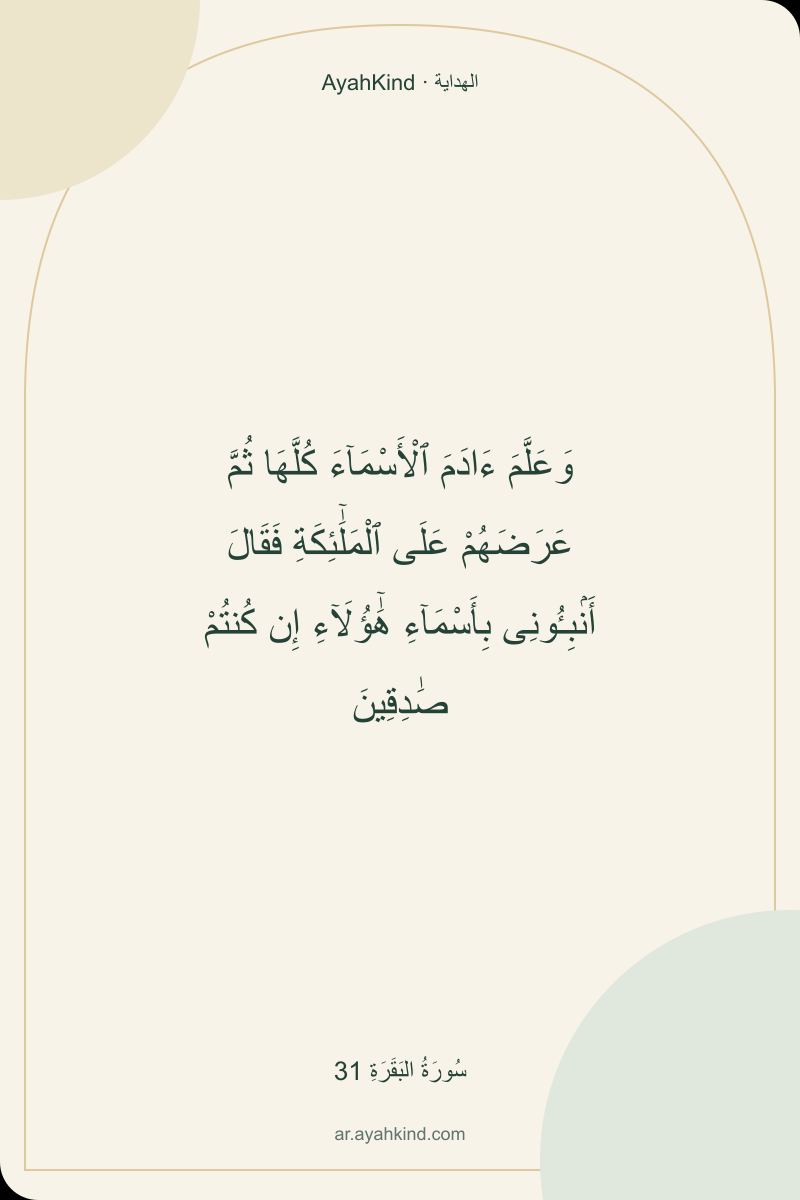 AyahKind · الهداية
وَعَلَّمَ ءَادَمَ ٱلْأَسْمَآءَ كُلَّهَا ثُمَّ
عَرَضَهُمْ عَلَى ٱلْمَلَٰٓئِكَةِ فَقَالَ
أَنۢبِـُٔونِى بِأَسْمَآءِ هَٰٓؤُلَآءِ إِن كُنتُمْ
صَٰدِقِينَ
سُورَةُ البَقَرَةِ 31
ar.ayahkind.com